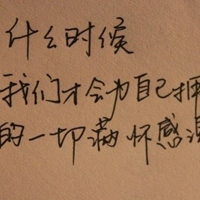 什么时候
我们才会为自己拥
的一切满怀感激